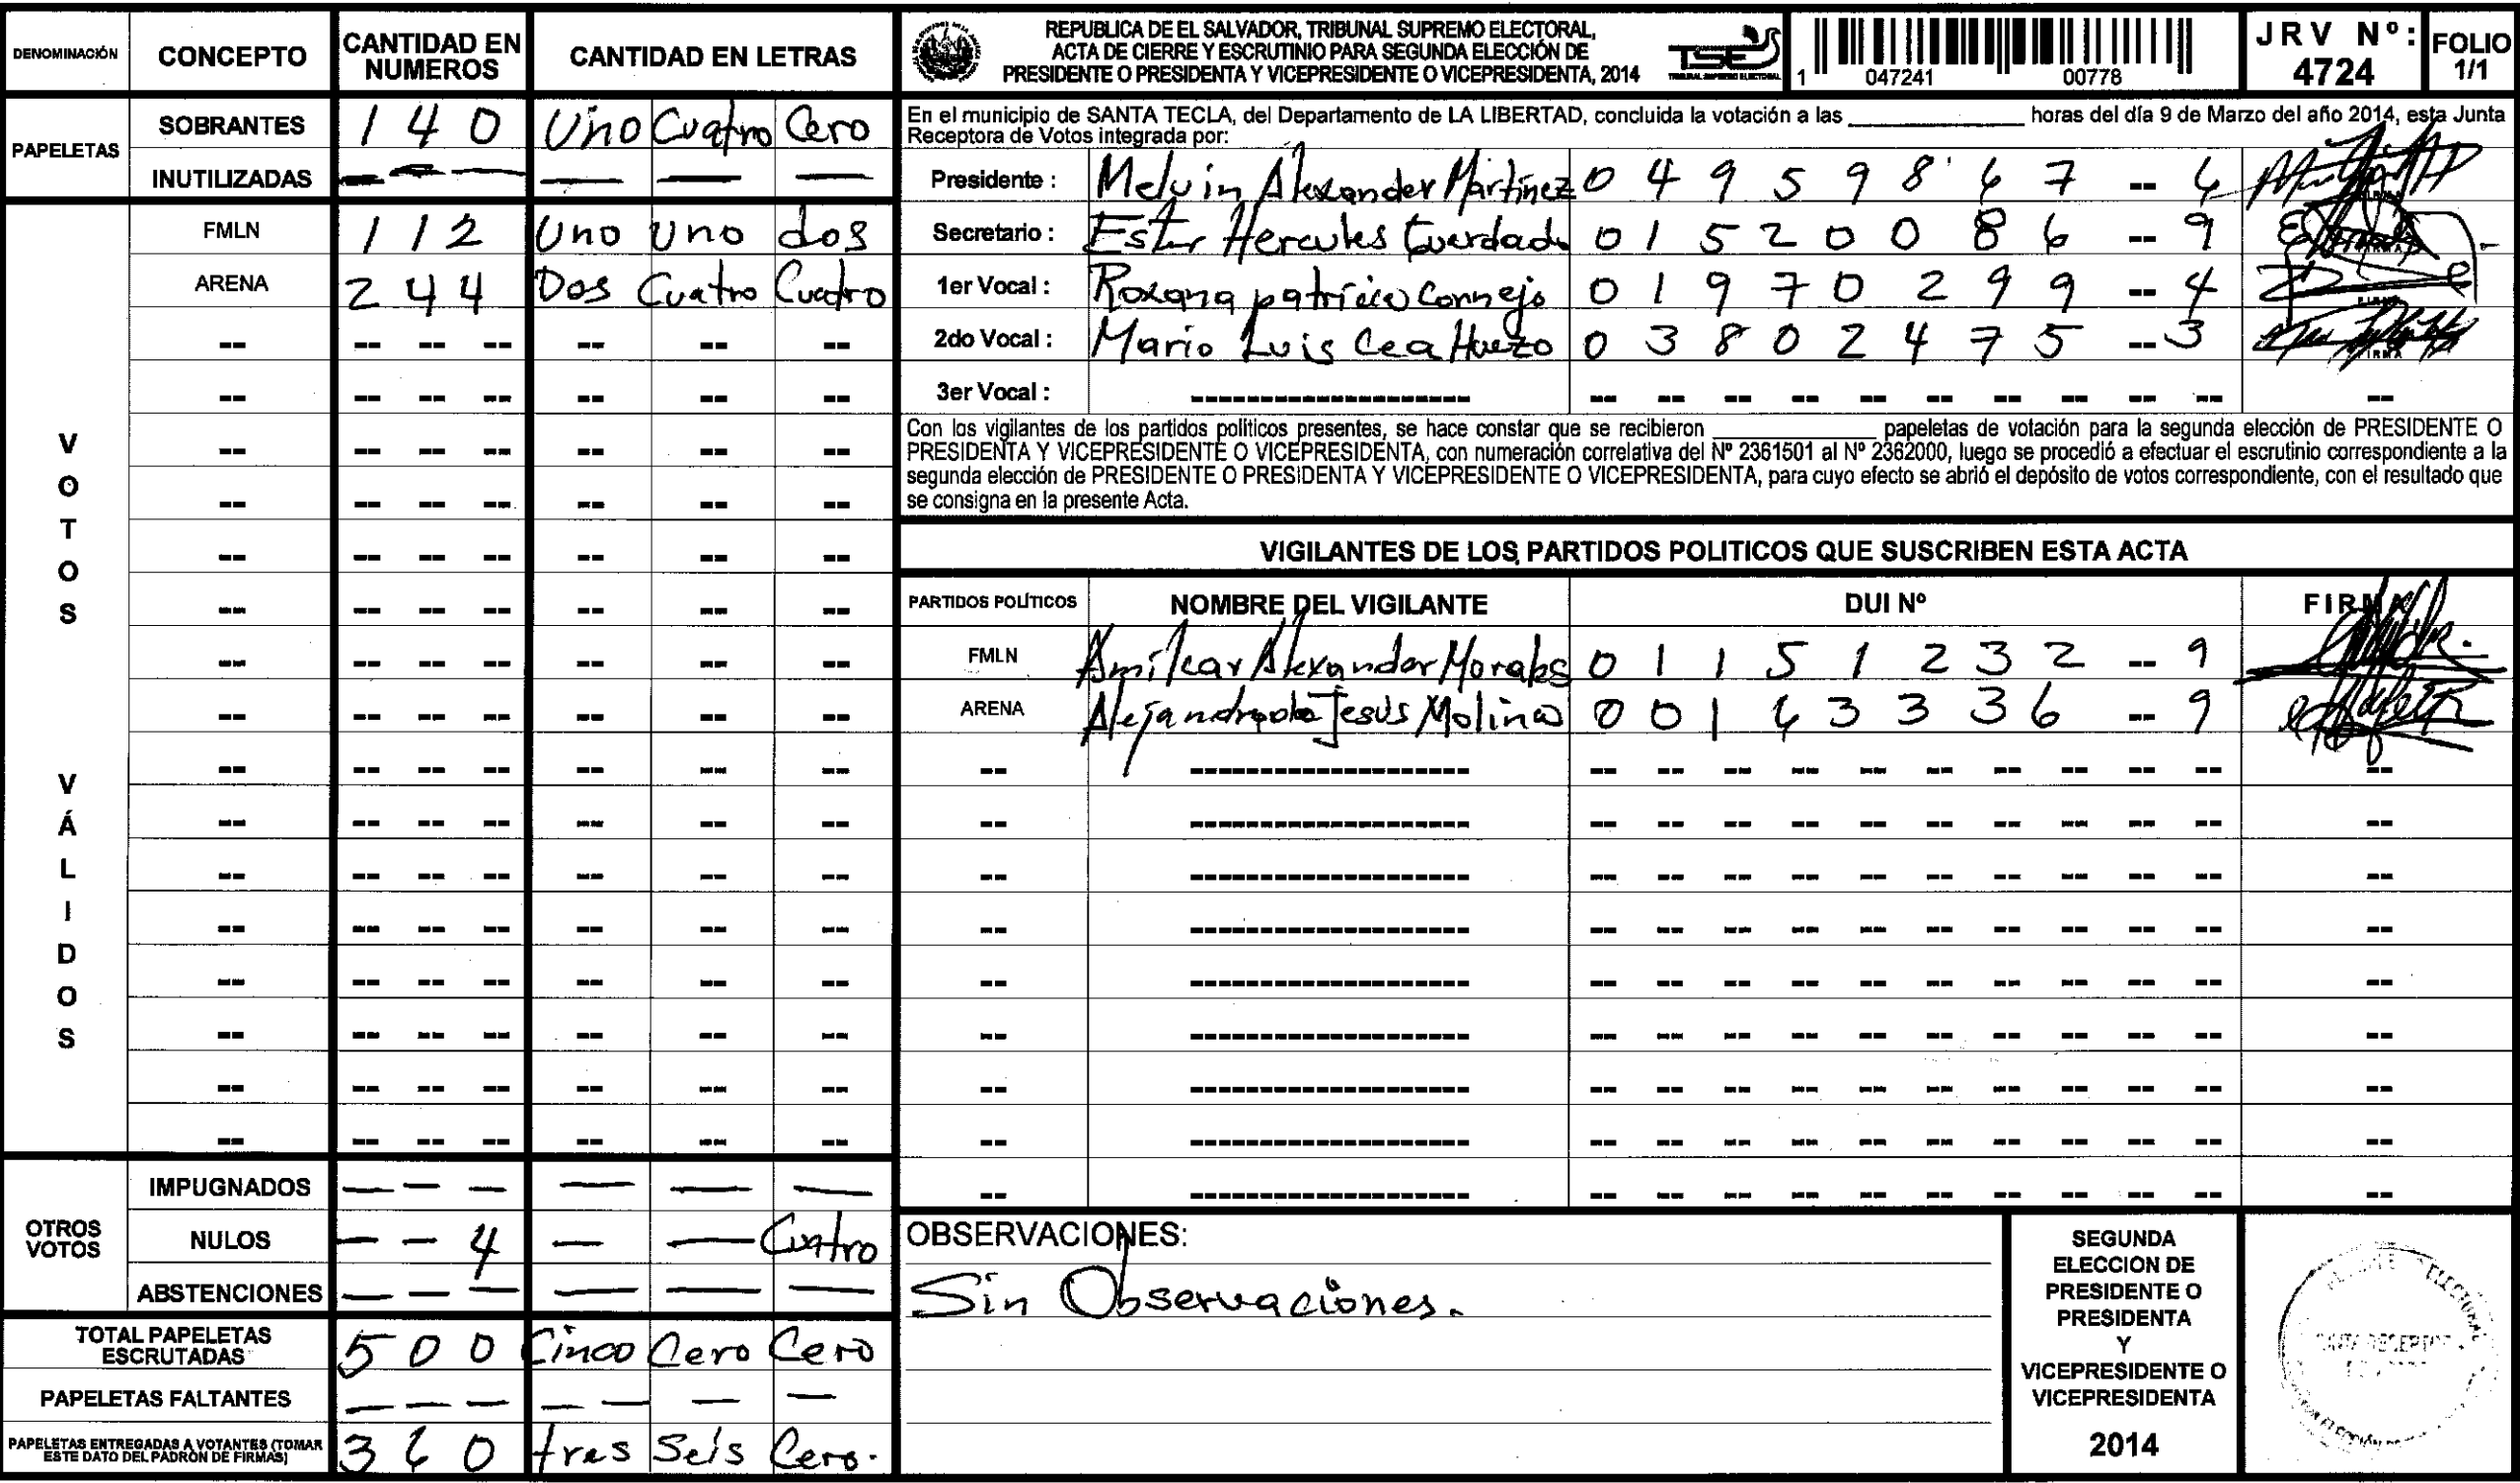 DENOMINACIÓN CONCEPTO CANTIDAD EN NUMEROS CANTIDAD EN LETRAS
PAPELETAS
SOBRANTES 1 4 0 Uno Cuatro Cero
INUTILIZADAS — — — — — —
VOTOS VÁLIDOS
FMLN 1 1 2 Uno Uno dos
ARENA 2 4 4 Dos Cuatro Cuatro
OTROS VOTOS
IMPUGNADOS — — — — — —
NULOS — — 4 — — Cuatro
ABSTENCIONES — — — — — —
TOTAL PAPELETAS ESCRUTADAS 5 0 0 Cinco Cero Cero
PAPELETAS FALTANTES — — — — — —
PAPELETAS ENTREGADAS A VOTANTES (TOMAR ESTE DATO DEL PADRÓN DE FIRMAS) 3 6 0 tres Seis Cero.
REPUBLICA DE EL SALVADOR, TRIBUNAL SUPREMO ELECTORAL,
ACTA DE CIERRE Y ESCRUTINIO PARA SEGUNDA ELECCIÓN DE
PRESIDENTE O PRESIDENTA Y VICEPRESIDENTE O VICEPRESIDENTA, 2014
TSE
TRIBUNAL SUPREMO ELECTORAL
1 047241 00778
JRV Nº: 4724
FOLIO 1/1
En el municipio de SANTA TECLA, del Departamento de LA LIBERTAD, concluida la votación a las ____________ horas del día 9 de Marzo del año 2014, esta Junta
Receptora de Votos integrada por:
Presidente : Melvin Alexander Martínez 0 4 9 5 9 8 6 7 -- 6
Secretario : Ester Hercules Guardado 0 1 5 2 0 0 8 6 -- 9
1er Vocal : Roxana patricia Cornejo 0 1 9 7 0 2 9 9 -- 4
2do Vocal : Mario Luis Cea Huezo 0 3 8 0 2 4 7 5 -- 3
3er Vocal :
Con los vigilantes de los partidos políticos presentes, se hace constar que se recibieron ____________ papeletas de votación para la segunda elección de PRESIDENTE O
PRESIDENTA Y VICEPRESIDENTE O VICEPRESIDENTA, con numeración correlativa del Nº 2361501 al Nº 2362000, luego se procedió a efectuar el escrutinio correspondiente a la
segunda elección de PRESIDENTE O PRESIDENTA Y VICEPRESIDENTE O VICEPRESIDENTA, para cuyo efecto se abrió el depósito de votos correspondiente, con el resultado que
se consigna en la presente Acta.
VIGILANTES DE LOS PARTIDOS POLITICOS QUE SUSCRIBEN ESTA ACTA
PARTIDOS POLÍTICOS NOMBRE DEL VIGILANTE DUI Nº FIRMA
FMLN Amílcar Alexander Morales 0 1 1 5 1 2 3 2 -- 9
ARENA Alejandro de Jesús Molina 0 0 1 6 3 3 3 6 -- 9
OBSERVACIONES:
Sin Observaciones.
SEGUNDA
ELECCION DE
PRESIDENTE O
PRESIDENTA
Y
VICEPRESIDENTE O
VICEPRESIDENTA
2014